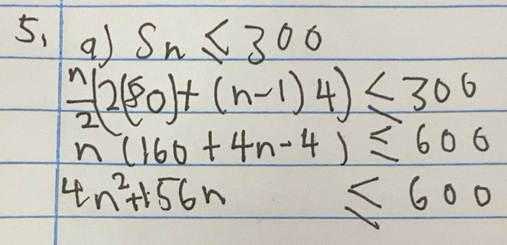 5, a) Sn ≤ 300
n/2 (2(80) + (n-1) 4) ≤ 300
n (160 + 4n - 4) ≤ 600
4n² + 156n ≤ 600